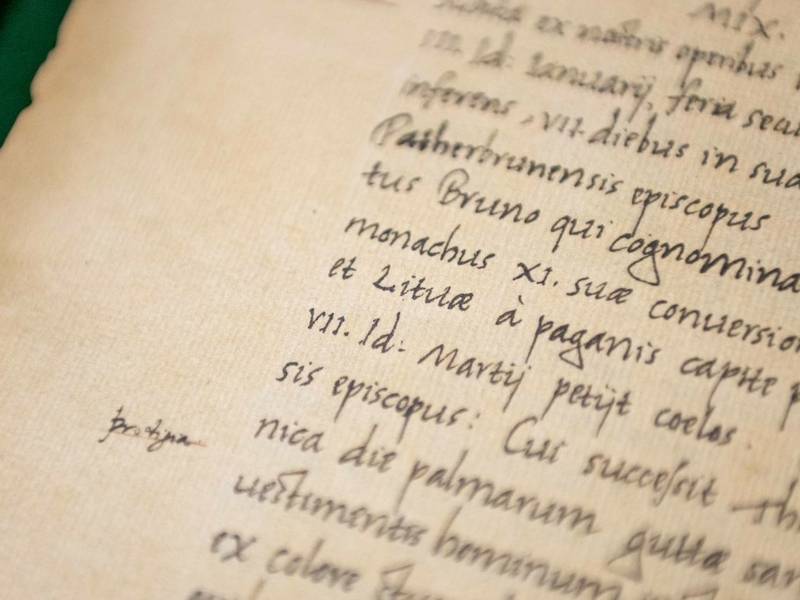 MIX.
ex nostris operibus
III. Id. Ianuarij, feria secu
inferens, VII. diebus in sua
Patherbrunensis episcopus
tus Bruno qui cognomina
monachus XI. suæ conuersion
et Lituæ à paganis capite p
VII. Id. Martij petijt coelos.
sis episcopus: Cui succeſsit Th
nica die palmarum guttæ san
ueſtimentis hominum
ex colore